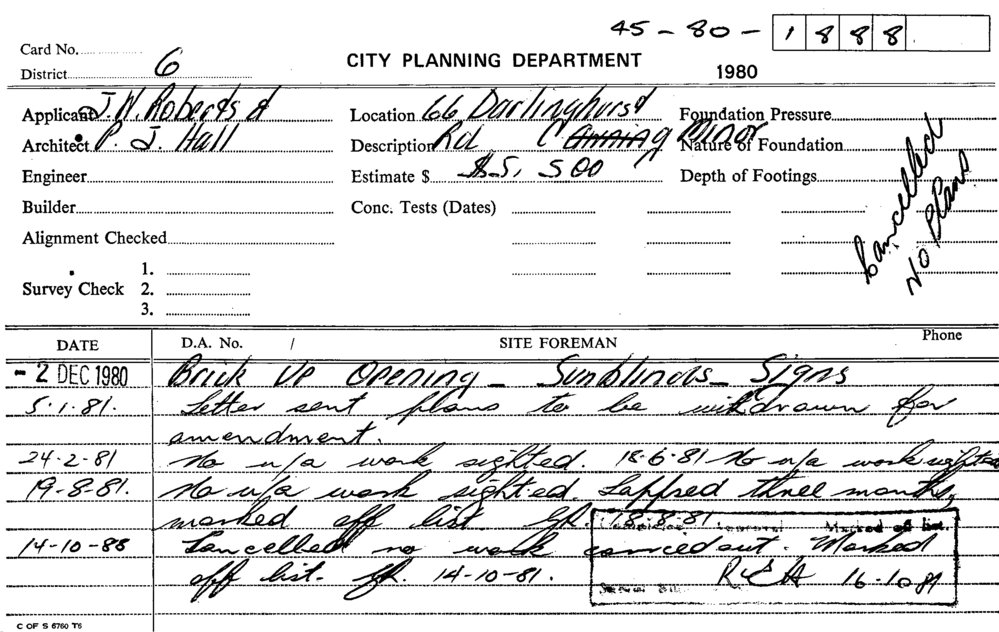 45 - 80 - 1888
Card No.
CITY PLANNING DEPARTMENT
District 6
1980
Applicant J. W. Roberts &
Location 66 Darlinghurst
Foundation Pressure
Architect P. J. Hall
Description Rd Minor
Nature of Foundation
Engineer
Estimate $ $5,500
Depth of Footings
Builder
Conc. Tests (Dates)
Cancelled
No Plans
Alignment Checked
1.
Survey Check 2.
3.
DATE
D.A. No. /
SITE FOREMAN
Phone
- 2 DEC 1980 Brick Up Opening - Sunblinds - Signs
5.1.81. Letter sent plans to be withdrawn for
amendment.
24-2-81 No u/a work sighted. 18-6-81 No u/a work sighted
19-8-81. No u/a work sighted. Lapsed three months,
marked off list 18.8.81
Marked off list.
14-10-88 Cancelled no work carried out. Marked
off list. 14-10-81.
16-10-81
C OF S 6760 T6